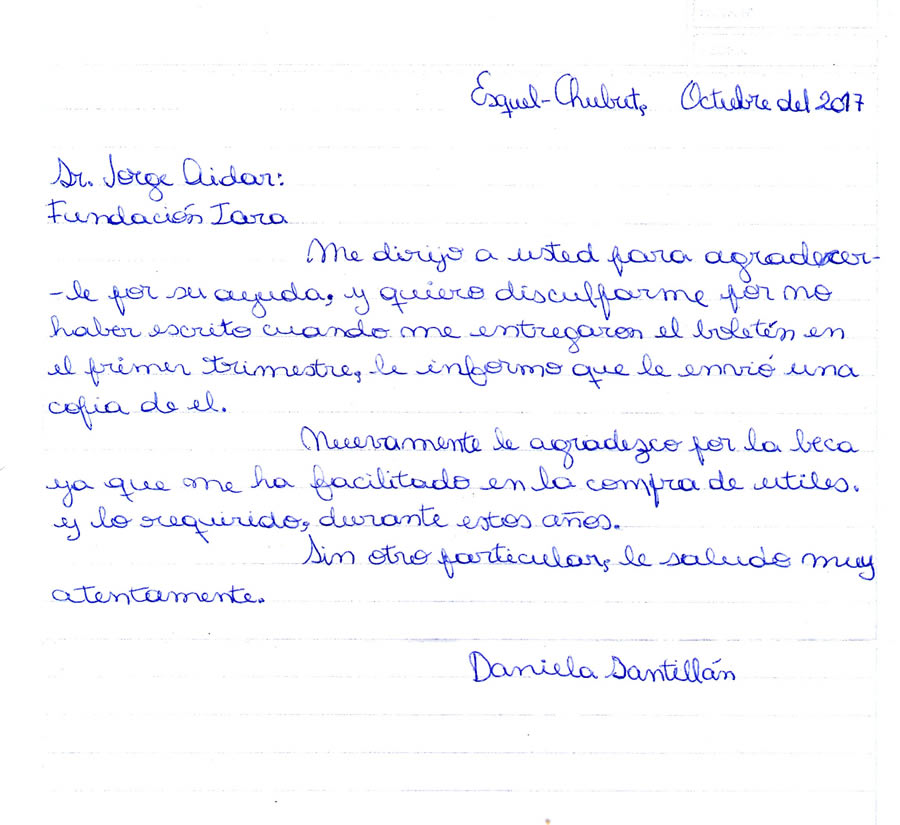 Esquel-Chubut, Octubre del 2017
Dr. Jorge Aidar:
Fundación Iara
Me dirijo a usted para agradecer-
-le por su ayuda, y quiero disculparme por no
haber escrito cuando me entregaron el boletín en
el primer trimestre, le informo que le envió una
copia de el.
Nuevamente le agradezco por la beca
ya que me ha facilitado en la compra de utiles.
y lo requirido, durante estos años.
Sin otro particular, le saludo muy
atentamente.
Daniela Santillán